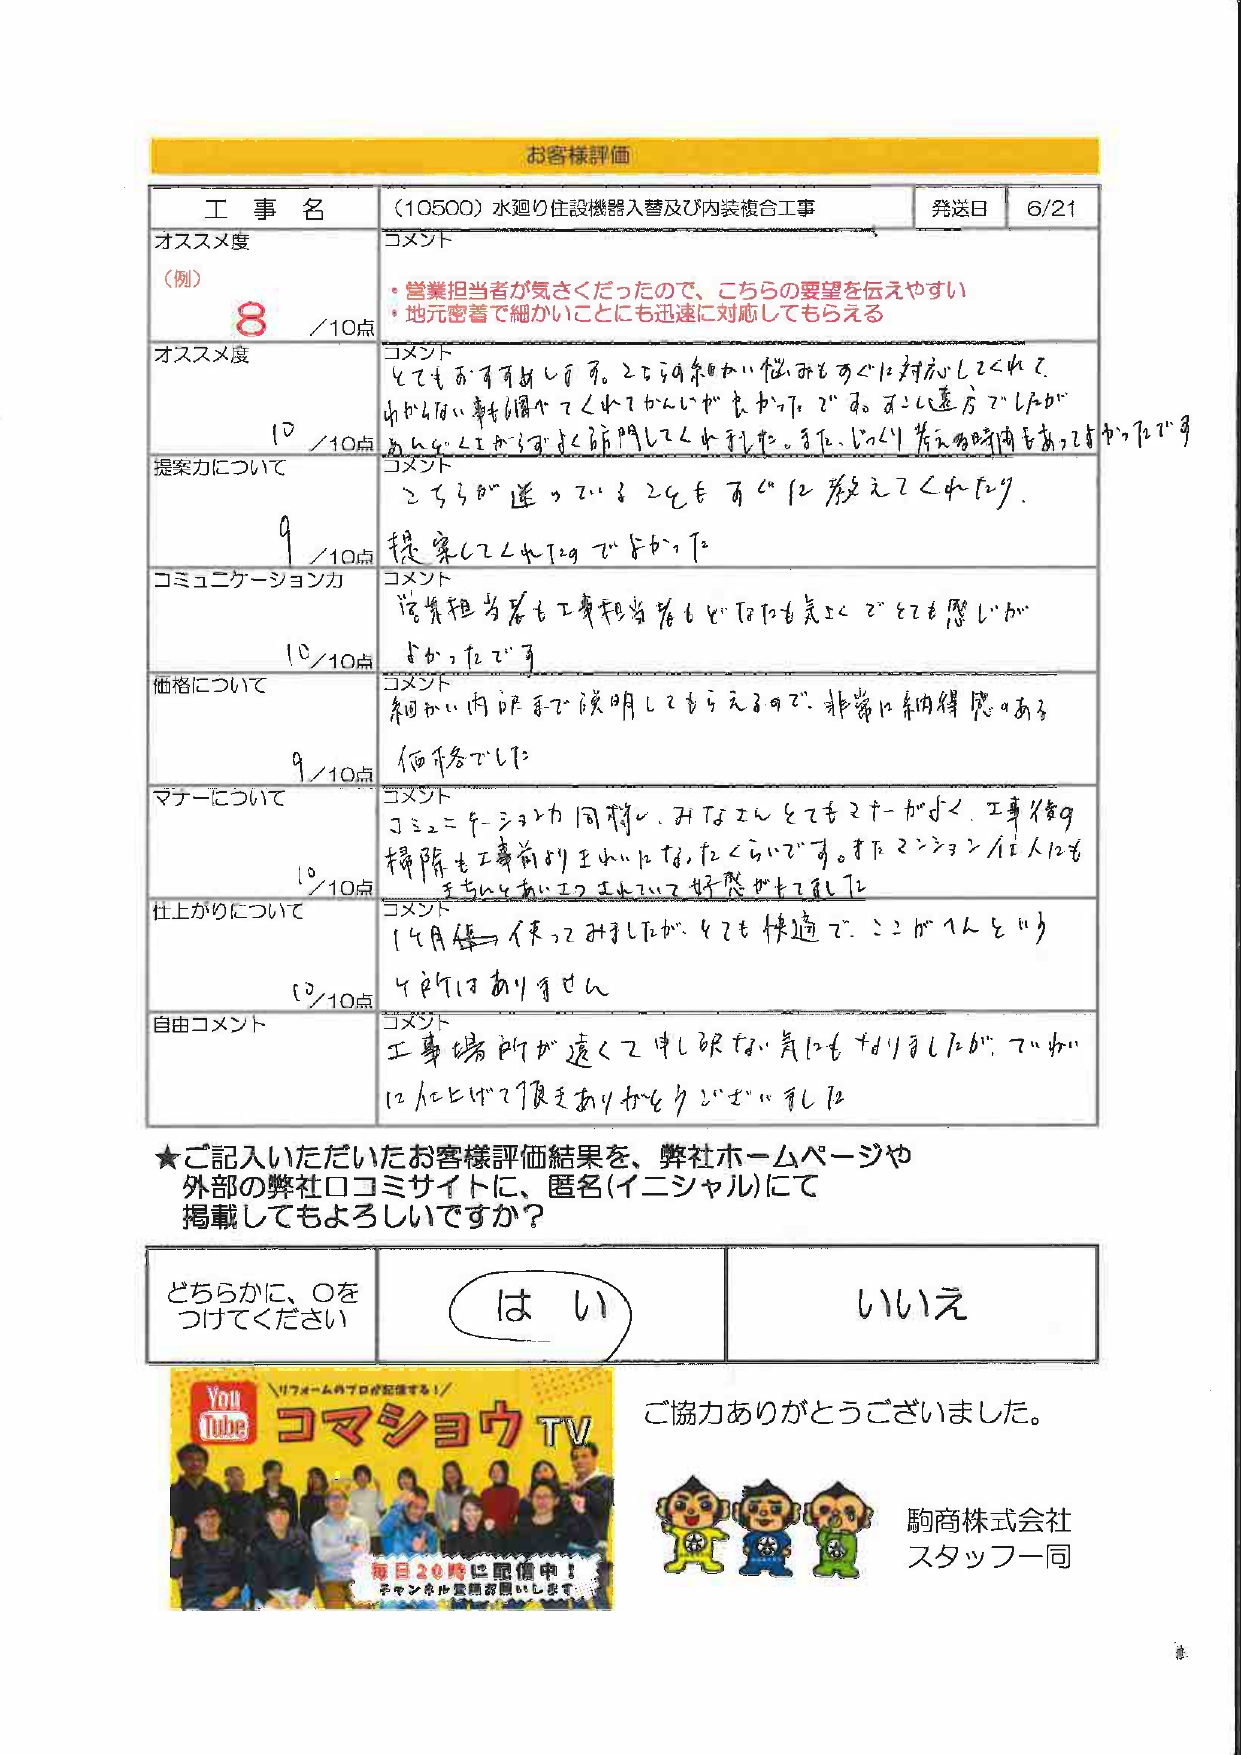 お客様評価
工 事 名 (10500) 水廻り住設機器入替及び内装複合工事 発送日 6/21
オススメ度 コメント
(例)
・営業担当者が気さくだったので、こちらの要望を伝えやすい
・地元密着で細かいことにも迅速に対応してもらえる
8 /10点
オススメ度 コメント
とてもおすすめします。こちらの細かい悩みもすぐに対応してくれて、
わからない事も調べてくれてかんじが良かったです。すこし遠方でしたが
10 /10点 めんどくさがらずよく訪問してくれました。また、じっくり考える時間もあってよかったです
提案力について コメント
こちらが迷っていることもすぐに教えてくれたり、
9 /10点 提案してくれたのでよかった
コミュニケーション力 コメント
営業担当者も工事担当者もどなたも気さくでとても感じが
10 /10点 よかったです
価格について コメント
細かい内訳まで説明してもらえるので、非常に納得感のある
9 /10点 価格でした
マナーについて コメント
コミュニケーション力同様に、みなさんとてもマナーがよく、工事後の
掃除も工事前よりきれいになったくらいです。またマンション住人にも
10 /10点 きちんとあいさつされていて好感がもてました
仕上がりについて コメント
1ヶ月 使ってみましたが、とても快適で、ここがへんという
10 /10点 ヶ所はありません
自由コメント コメント
工事場所が遠くて申し訳ない気にもなりましたが、ていねい
に仕上げて頂きありがとうございました
★ご記入いただいたお客様評価結果を、弊社ホームページや
外部の弊社口コミサイトに、匿名(イニシャル)にて
掲載してもよろしいですか?
どちらかに、○を
つけてください
は い いいえ
You Tube
\リフォームのプロが配信する!/
コマショウTV
毎日20時に配信中!
チャンネル登録お願いします
ご協力ありがとうございました。
駒商株式会社
スタッフ一同